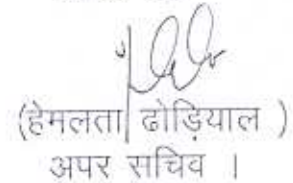 (हेमलता ढोड़ियाल )
अपर सचिव ।